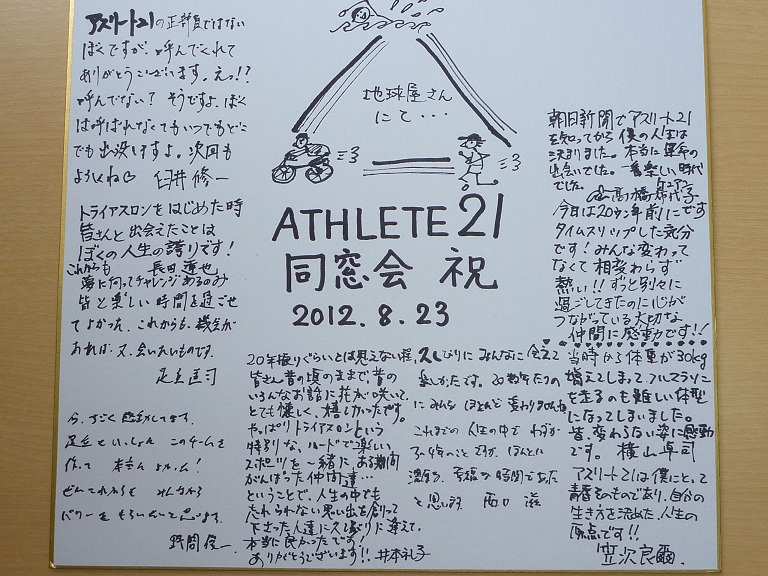 アスリート21の正部員ではない
ぼくですが、呼んでくれて
ありがとうございます。えっ!?
呼んでない? そうですよ、ぼく
は呼ばれなくてもいつでもどこ
でも出没しますよ。次回も
よろしくね 臼井 修一
トライアスロンをはじめた時
皆さんと出会えたことは
ぼくの人生の誇りです!
これからも
夢に向ってチャレンジあるのみ
皆と楽しい時間を過ごせ
てよかった、これからも、機会が
あれば、又、会いたいものです。
今、すごく感動してます。
足立といっしょに このチームを
作って 本当よかった!
ぜひこれからも みんなから
パワーをもらいたいと思います。
野間
地球屋さん
にて・・・
ATHLETE 21
同窓会 祝
2012.8.23
20年振りぐらいとは思えない程、
皆さん昔の頃のままで、昔の
いろんなお話に花が咲いて、
とても懐しく、嬉しかったです。
やっぱりトライアスロンという
特別な、ハードで楽しい
スポーツを一緒に、ある期間
がんばった仲間達…
ということで、人生の中でも
忘れられない思い出を創って
下さった人達に久しぶりに逢えて、
本当に良かったです!
ありがとうございます!! 井本礼子
久しぶりに みんなに会えて
楽しかったです。20数年たつの
に みんな ほとんど変わりませんね
これまでの 人生の中で わずか
3、4年のこと ですが、ほんとに
濃厚な、至福な時間であった
と思います 西口 滋
朝日新聞でアスリート21
を知ってから僕の人生は
決まりました。本当に運命の
出会いでした。一番楽しい時代
でした。
今日は20ウン年前にです
タイムスリップした気分
です!みんな変わって
なくて相変わらず
熱い!!ずっと別々に
過ごしてきたのに心が
つながっている大切な
仲間に感動です!!
当時から体重が30kg
増えてしまって、フルマラソン
を走るのも難しい体型
になってしまいました。
皆、変わらない姿に感動
です。横山卓司
アスリート21は僕にとって
青春そのものであり、自分の
生き方を決めた、人生の
原点です!!
笠次良爾